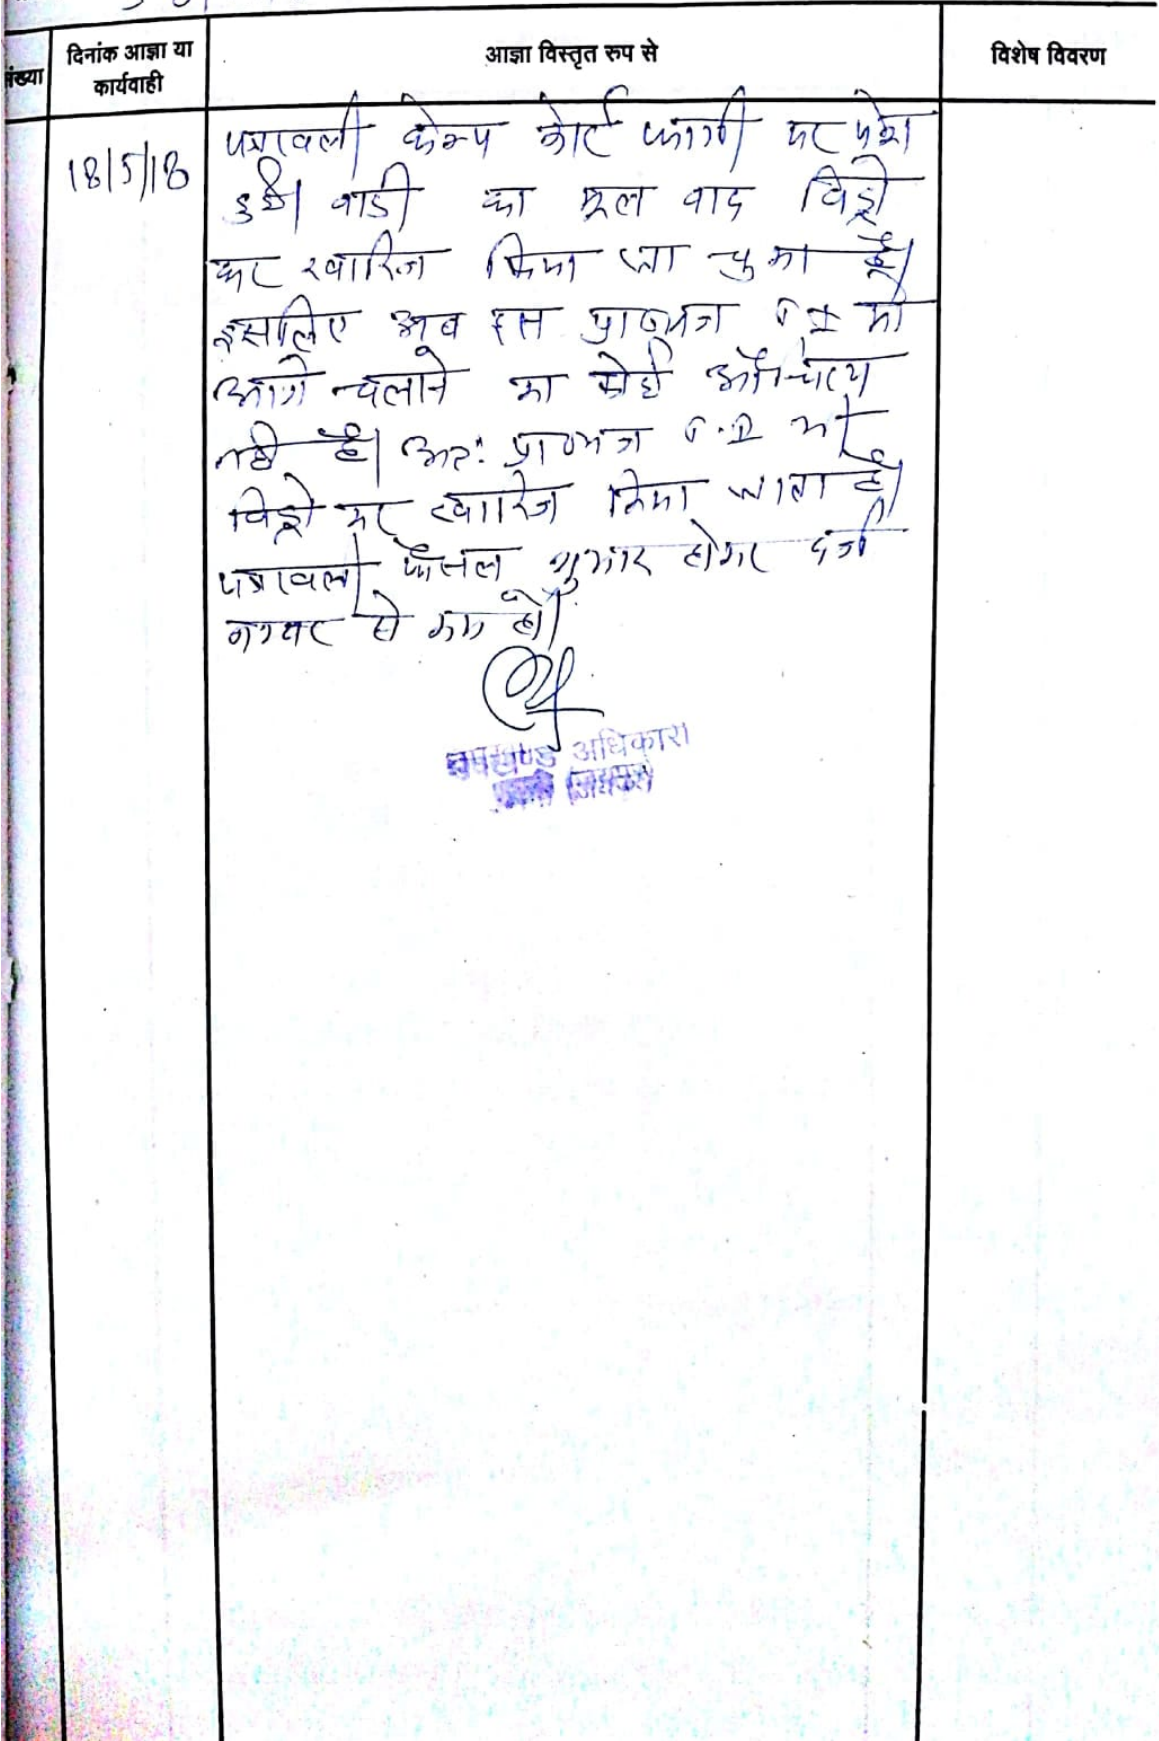 संख्या
दिनांक आज्ञा या
कार्यवाही
आज्ञा विस्तृत रुप से
विशेष विवरण
18/5/18
पत्रावली केम्प कोर्ट फागी पर पेश
हुई। वादी का मूल वाद विड्रो
कर खारिज किया जा चुका है।
इसलिए अब इस प्रा०पत्र T.I को
आगे चलाने का कोई औचित्य
नही है। अतः प्रा०पत्र T.I को
विड्रो कर खारिज किया जाता है।
पत्रावली फैसल शुमार होकर दर्ज
नम्बर से कम हो।
उपखण्ड अधिकारी